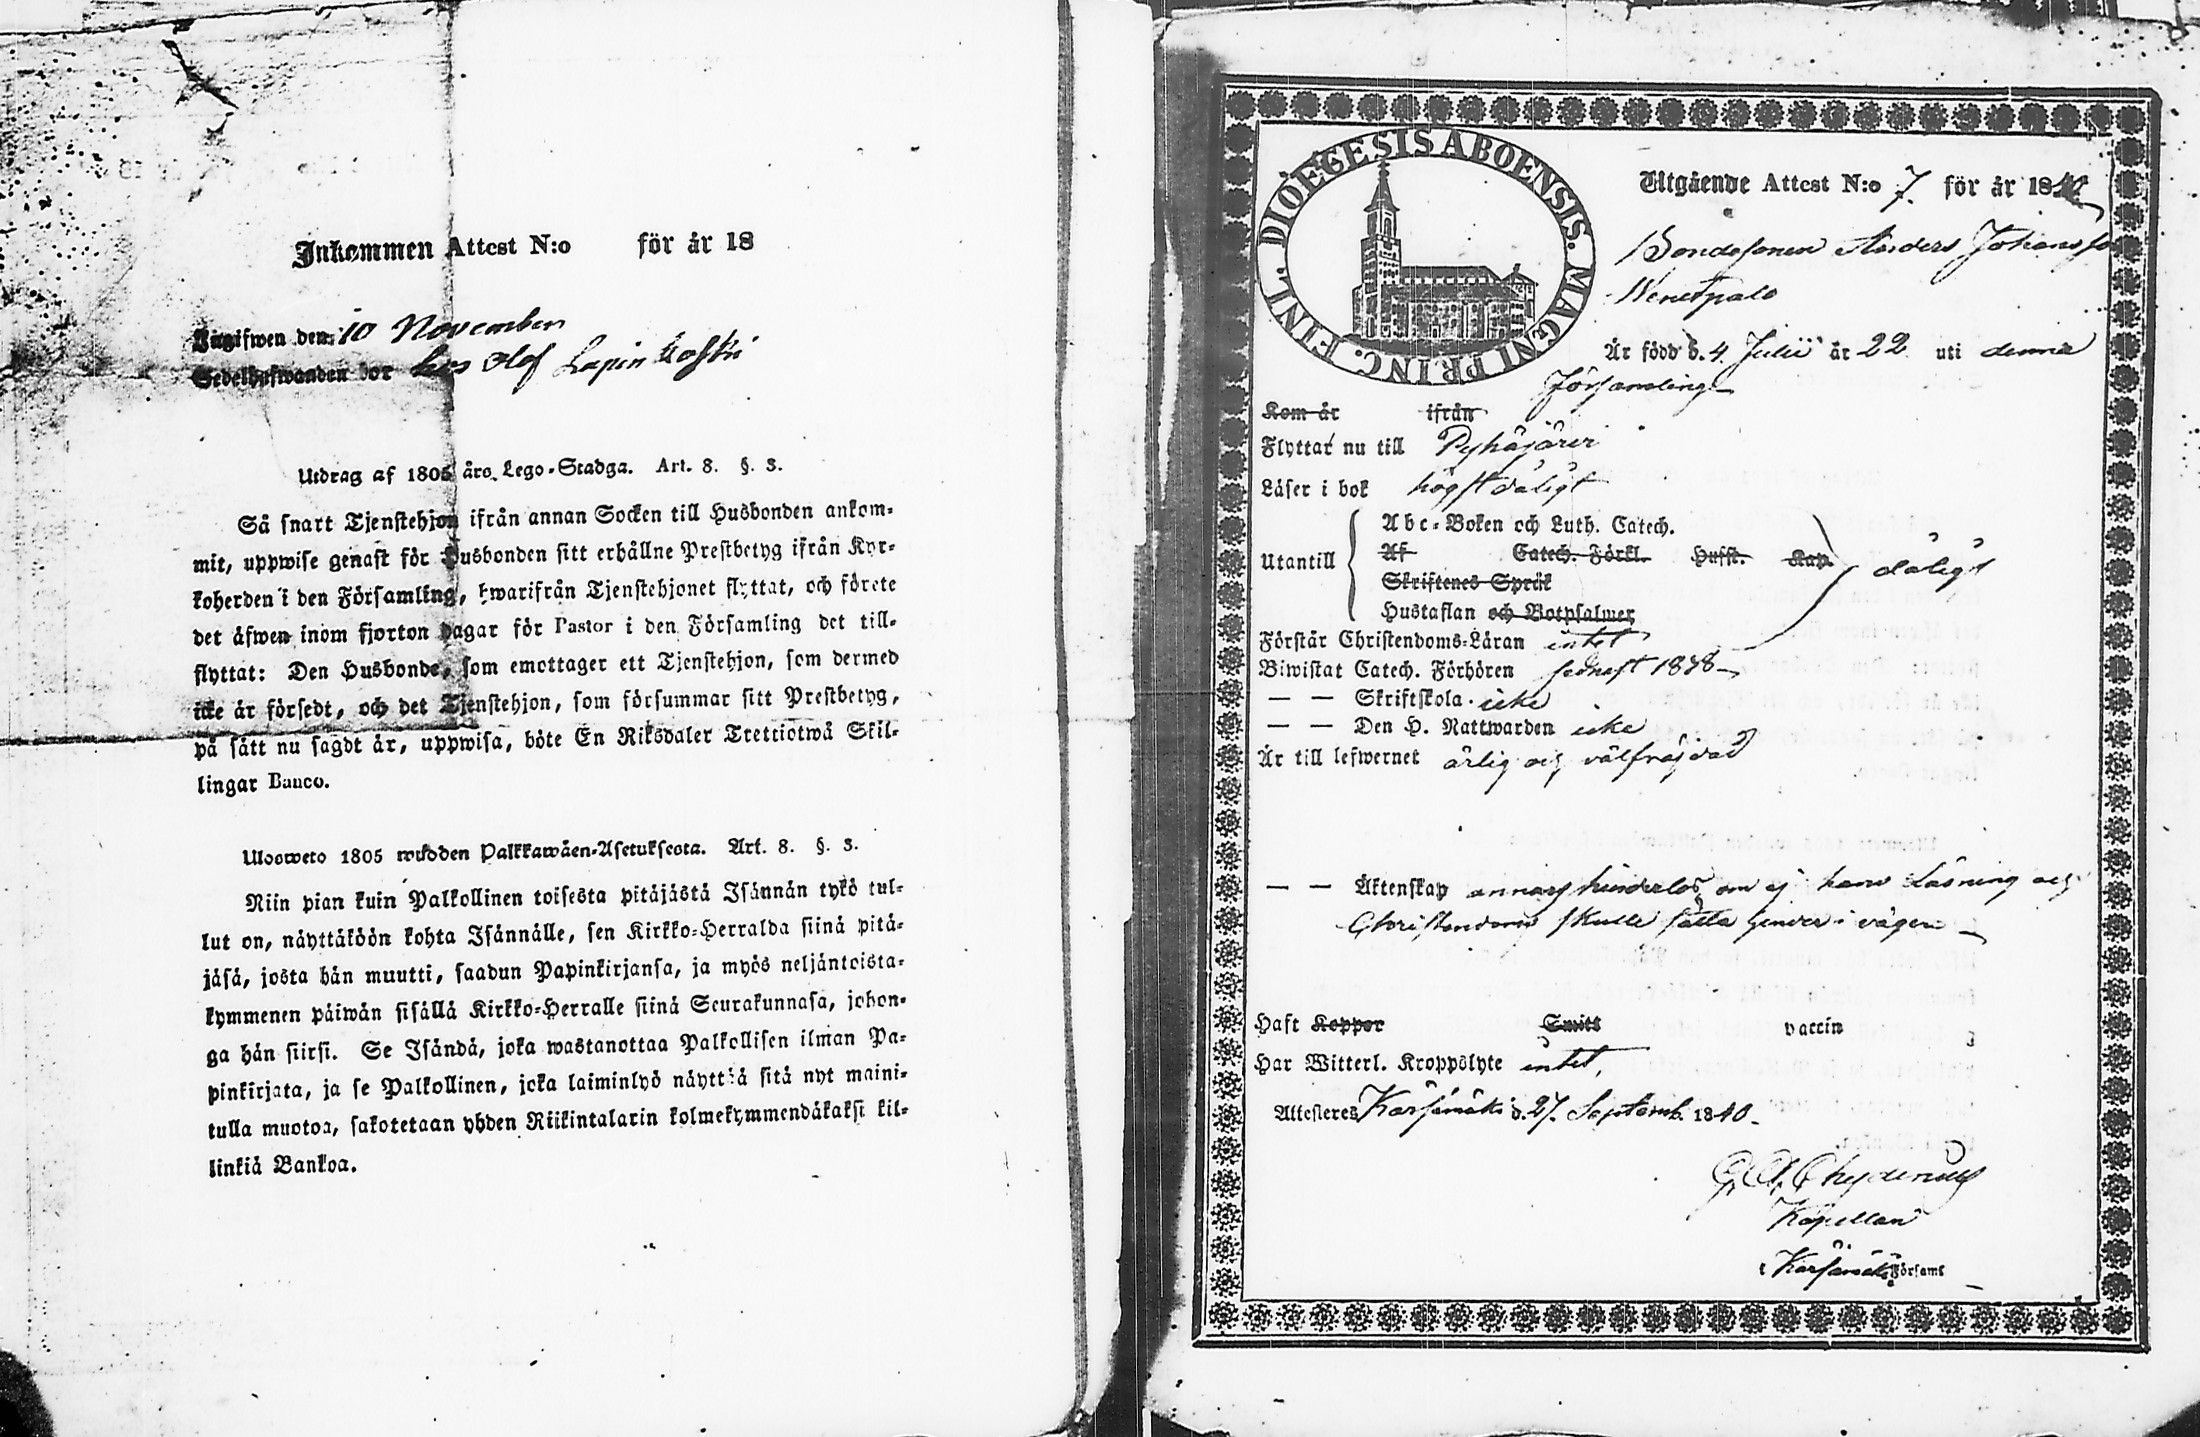 Inkommen Attest N:o för år 18
Ingifwen den 10 November
Sedelhafwanden bor hos Olof Lapinkoski
Utdrag af 1805 års Lego-Stadga. Art. 8. §. 3.
Så snart Tjenstehjon ifrån annan Socken till Husbonden ankom-
mit, uppwise genast för Husbonden sitt erhållne Prestbetyg ifrån Kyr-
koherden i den Församling, hwarifrån Tjenstehjonet flyttat, och förete
det äfwen inom fjorton dagar för Pastor i den Församling det till-
flyttat: Den Husbonde, som emottager ett Tjenstehjon, som dermed
icke är försedt, och det Tjenstehjon, som försummar sitt Prestbetyg,
på sätt nu sagdt är, uppwisa, böte En Riksdaler Trettiotwå Skil-
lingar Banco.
Ulosweto 1805 wuoden Palkkawäen-Asetuksesta. Art. 8. §. 3.
Niin pian kuin Palkollinen toisesta pitäjästä Isännän tykö tul-
lut on, näyttäköön kohta Isännälle, sen Kirkko-Herralda siinä pitä-
jäsä, josta hän muutti, saadun Papinkirjansa, ja myös neljäntoista-
kymmenen päiwän sisällä Kirkko-Herralle siinä Seurakunnasa, johon-
ga hän siirsi. Se Isändä, joka wastanottaa Palkollisen ilman Pa-
pinkirjata, ja se Palkollinen, joka laiminlyö näyttää sitä nyt maini-
tulla muotoa, sakotetaan yhden Riikintalarin kolmekymmendäkaksi kil-
linkiä Bankoa.
DIOECESIS ABOENSIS. MAGNI PRINC. FINL.
Utgående Attest N:o 7. för år 1840
Bondesonen Anders Johansso
Wenetpalo
Är född d. 4 Julii år 22 uti denna
församling
Kom år ifrån
Flyttar nu till Pyhäjärvi
Läser i bok högst dåligt
Abc-Boken och Luth. Catech.
Utantill Af Catech. Förkl. Husst. Kap. dåligt
Skriftenes Språk
Hustaflan och Botpsalmer
Förstår Christendoms-Läran intet
Biwistat Catech. Förhören sednast 1838
— — Skriftskola icke
— — Den H. Nattwarden icke
Är till lefwernet ärlig och välfräjdad
— — Äktenskap annars hinderlös om ej hans Läsning och
Christendom skulle sätta hinder i vägen
Haft Koppor Smitt vaccin
Har Witterl. Kroppslyte intet,
Attesteres Kärsämäki d. 27. Septemb. 1840.
G. A. Chydenius
Kapellan
i Kärsämäki Förfaml